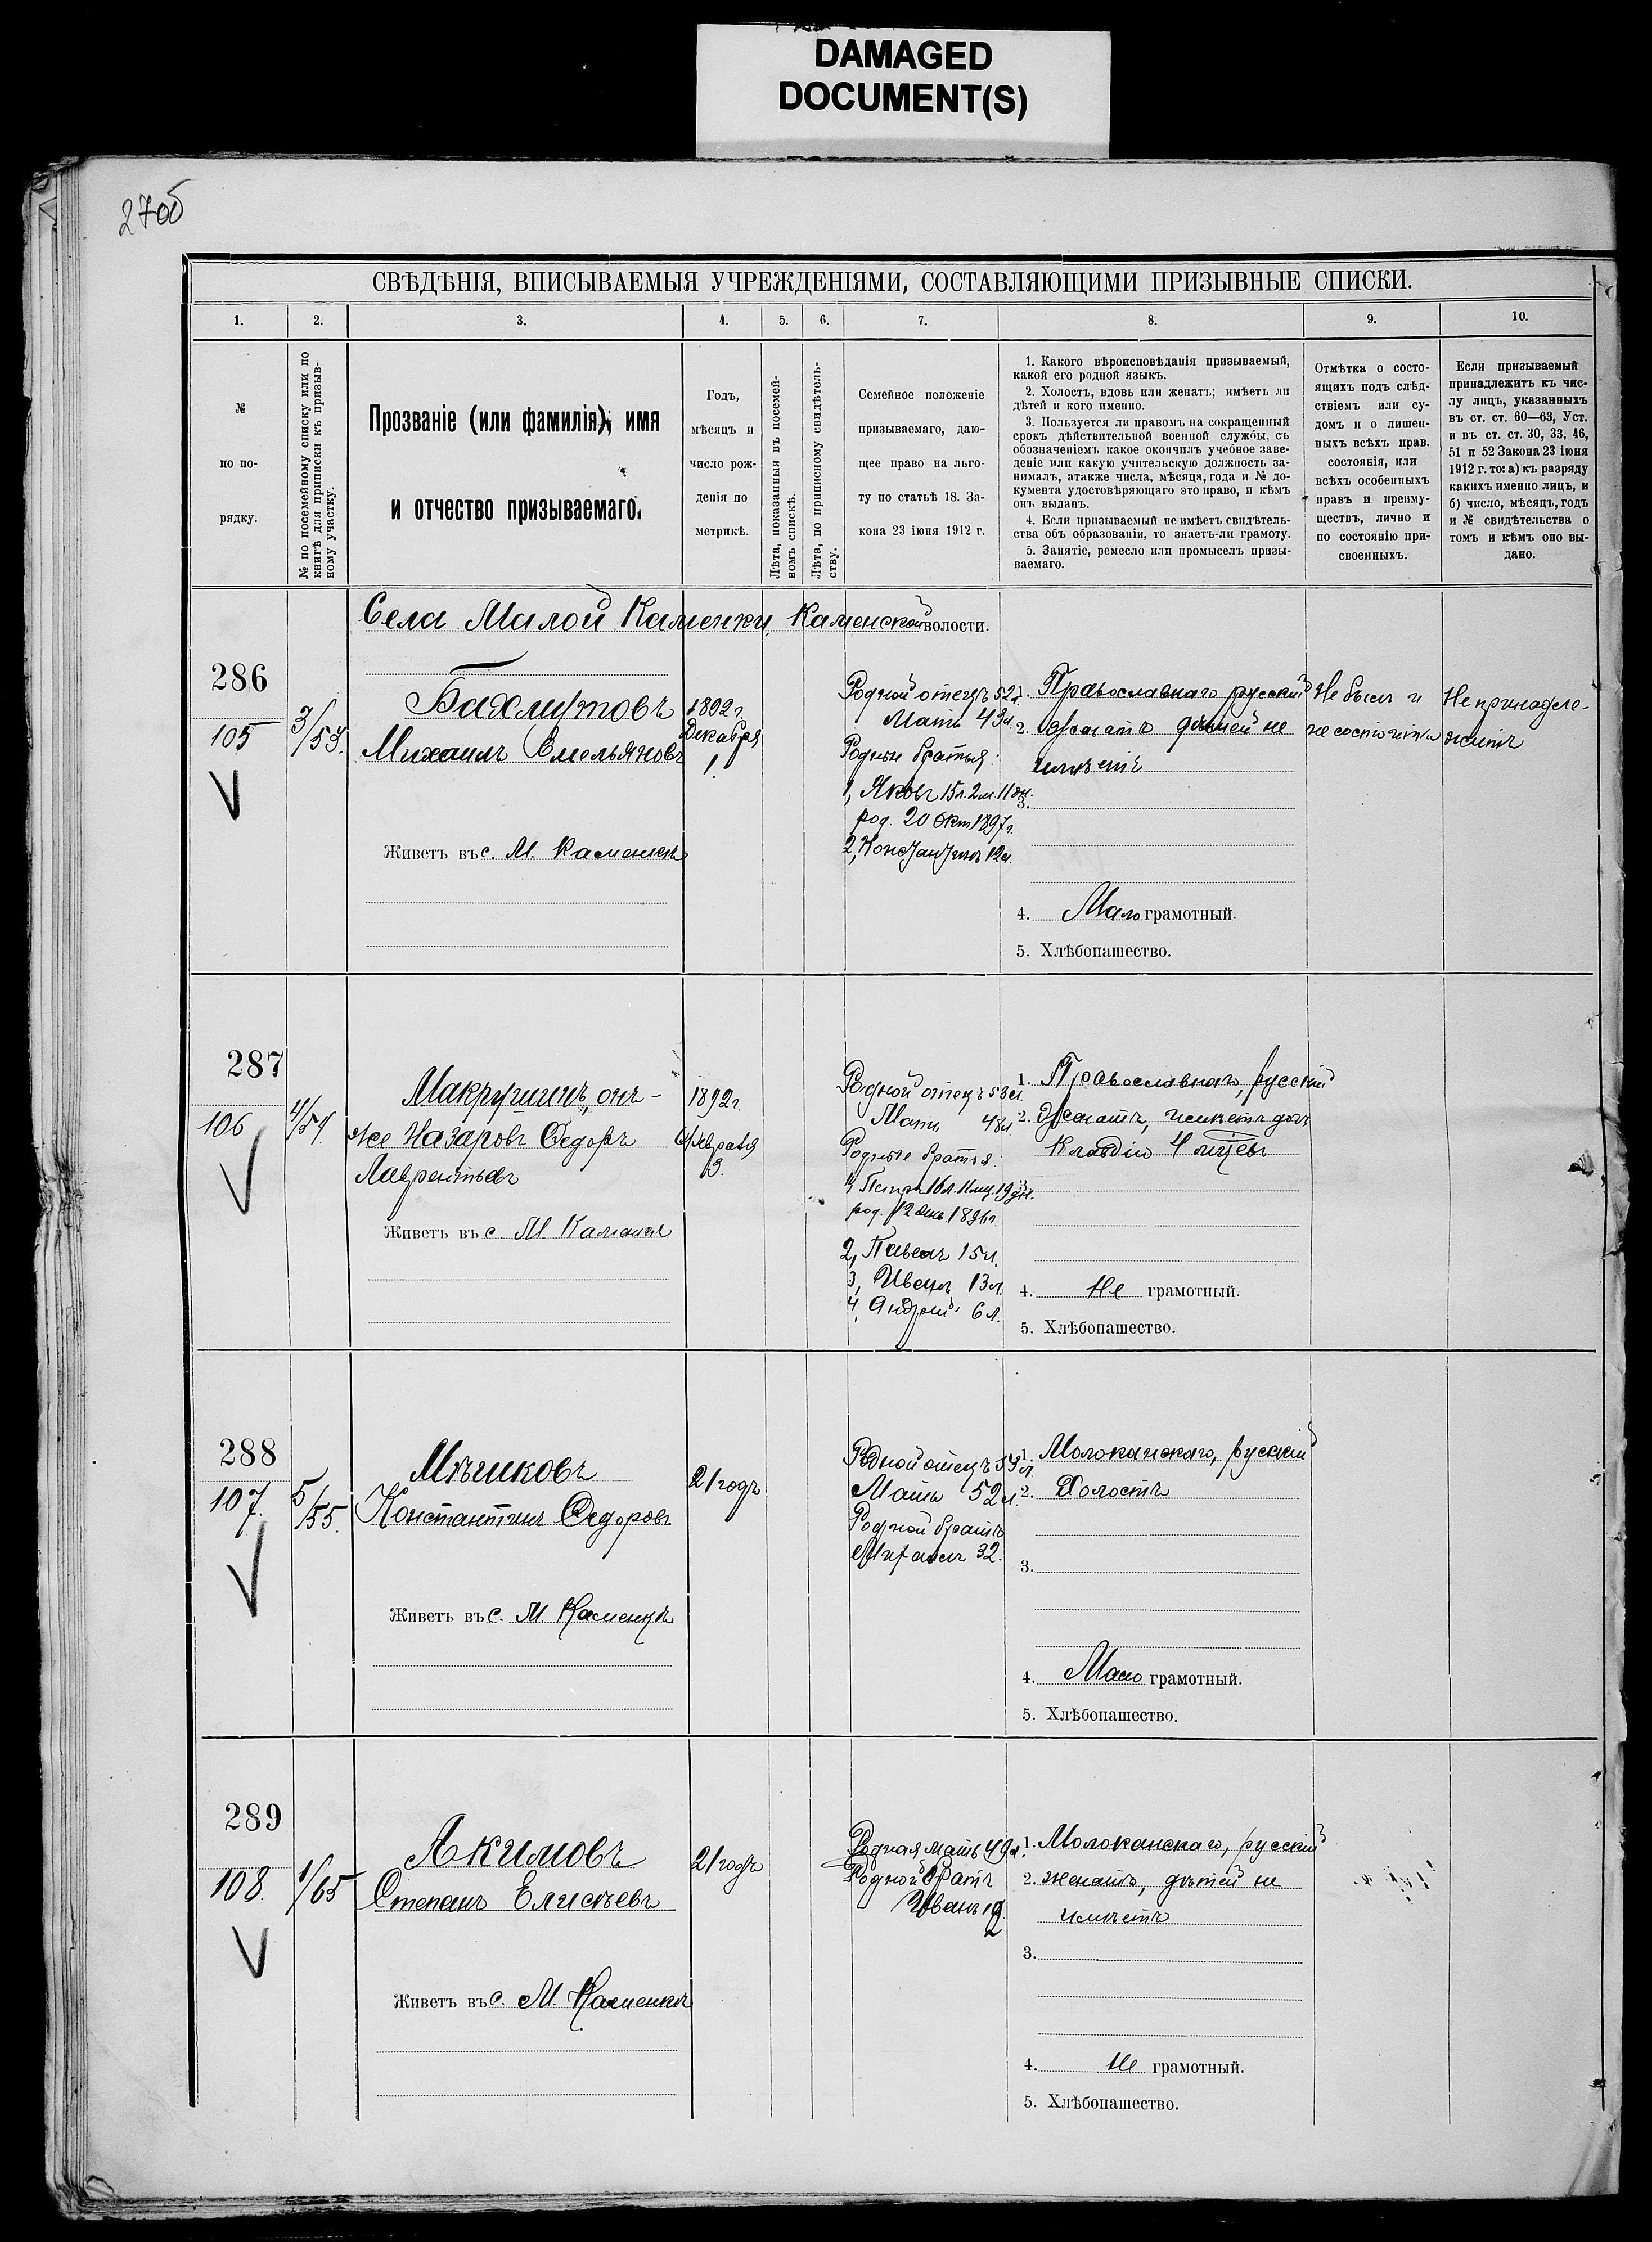 DAMAGED
DOCUMENT(S)
270б
СВѢДѢНІЯ, ВПИСЫВАЕМЫЯ УЧРЕЖДЕНІЯМИ, СОСТАВЛЯЮЩИМИ ПРИЗЫВНЫЕ СПИСКИ.
1. 2. 3. 4. 5. 6. 7. 8. 9. 10.
№
по по-
рядку.
№ по посемейному списку или по
книгѣ для приписки къ призыв-
ному участку.
Прозваніе (или фамилія), имя
и отчество призываемаго.
Годъ,
мѣсяцъ и
число рож-
денія по
метрикѣ.
Лѣта, показанныя въ посемей-
номъ спискѣ.
Лѣта, по приписному свидѣтель-
ству.
Семейное положеніе
призываемаго, даю-
щее право на льго-
ту по статьѣ 18. За-
кона 23 іюня 1912 г.
1. Какого вѣроисповѣданія призываемый,
какой его родной языкъ.
2. Холостъ, вдовъ или женатъ; имѣетъ ли
дѣтей и кого именно.
3. Пользуется ли правомъ на сокращенный
срокъ дѣйствительной военной службы, съ
обозначеніемъ какое окончилъ учебное заве-
деніе или какую учительскую должность за-
нималъ, атакже числа, мѣсяца, года и № до-
кумента удостовѣряющаго это право, и кѣмъ
онъ выданъ.
4. Если призываемый не имѣетъ свидѣтель-
ства объ образованіи, то знаетъ-ли грамоту.
5. Занятіе, ремесло или промыселъ призы-
ваемаго.
Отмѣтка о состо-
ящихъ подъ слѣд-
ствіемъ или су-
домъ и о лишен-
ныхъ всѣхъ прав.
состоянія, или
всѣхъ особенныхъ
правъ и преиму-
ществъ, лично и
по состоянію при-
своенныхъ.
Если призываемый
принадлежитъ къ чис-
лу лицъ, указанныхъ
въ ст. ст. 60—63, Уст.
и въ ст. ст. 30, 33, 46,
51 и 52 Закона 23 іюня
1912 г. то: а) къ разряду
какихъ именно лицъ, и
б) число, мѣсяцъ, годъ
и № свидѣтельства о
томъ и кѣмъ оно вы-
дано.
Села Малой Каменки, Каменской волости.
286
105
3/53.
Бахмутовъ
Михаилъ Емельяновъ
Живетъ въ с. М. Каменкѣ
1892 г.
Декабря
1
Родной отецъ 52 л.
Мать 43 л.
Родные братья:
1, Яковъ 15 л. 2 м. 11 дн.
род. 20 Окт 1897 г.
2, Константинъ 12 л.
1. Православнаго русскій
2. женатъ дѣтей не
имѣетъ
3.
4. Мало грамотный.
5. Хлѣбопашество.
Не былъ и
не состоитъ
Не принадле-
житъ
287
106
4/54.
Макрушинъ, онъ-
же Назаровъ Ѳедоръ
Лаврентьевъ
Живетъ въ с. М. Каменкѣ
1892 г.
Февраля
3.
Родной отецъ 53 л.
Мать 48 л.
Родные братья:
1, Петръ 16 л. 11 мц. 19 дн.
род. 12 дек 1896 г.
2, Павелъ 15 л.
3, Иванъ 13 л.
4, Андрей 6 л.
1. Православнаго, русскій
2. Женатъ, имѣетъ дочь
Клавдію 4 мѣсяцевъ
3.
4. Не грамотный.
5. Хлѣбопашество.
288
107.
5/55.
Мѣшковъ
Константинъ Ѳедоровъ
Живетъ въ с. М. Каменкѣ
21 годъ
Родной отецъ 54 л.
Мать 52 л.
Родной братъ
Михаилъ 32.
1. Молоканскаго, русскій
2. Холостъ
3.
4. Мало грамотный.
5. Хлѣбопашество.
289
108.
1/65
Акимовъ
Степанъ Елисѣевъ
Живетъ въ с. М. Каменкѣ
21 годъ
Родная мать 49 л.
Родной братъ
Иванъ 19
1. Молоканскаго, русскій
2. женатъ, дѣтей не
имѣетъ
3.
4. Не грамотный.
5. Хлѣбопашество.